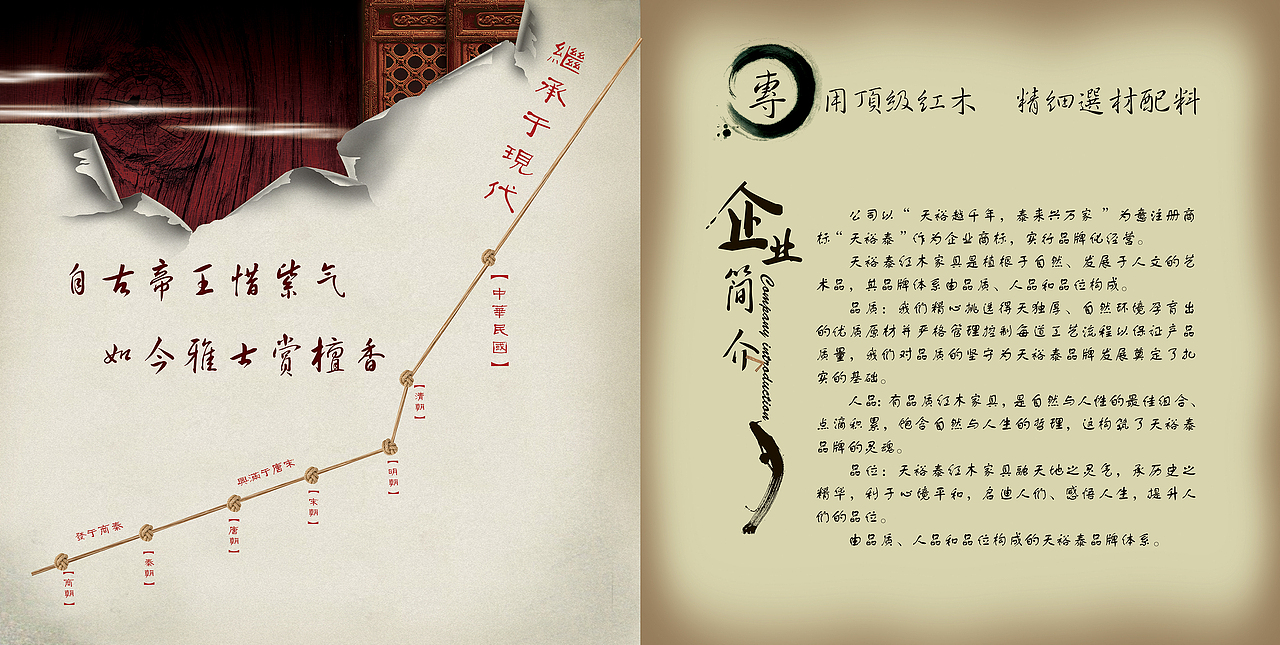 繼承于現代
自古帝王惜紫气
如今雅士赏檀香
【中華民國】
【清朝】
【明朝】
興涵于唐宋
【宋朝】
【唐朝】
發于商秦
【秦朝】
【商朝】
專用頂級红木 精细選材配料
企业简介
Company introduction
公司以“天裕越千年，泰来兴万家”为意注册商
标“天裕泰”作为企业商标，实行品牌化经营。
天裕泰红木家具是植根于自然、发展于人文的艺
术品，其品牌体系由品质、人品和品位构成。
品质：我们精心挑选得天独厚、自然环境孕育出
的优质原材并严格管理控制每道工艺流程以保证产品
质量，我们对品质的坚守为天裕泰品牌发展奠定了扎
实的基础。
人品：有品质红木家具，是自然与人性的最佳组合、
点滴积累，饱含自然与人生的哲理，这构筑了天裕泰
品牌的灵魂。
品位：天裕泰红木家具融天地之灵气，承历史之
精华，利于心境平和，启迪人们、感悟人生，提升人
们的品位。
由品质、人品和品位构成的天裕泰品牌体系。